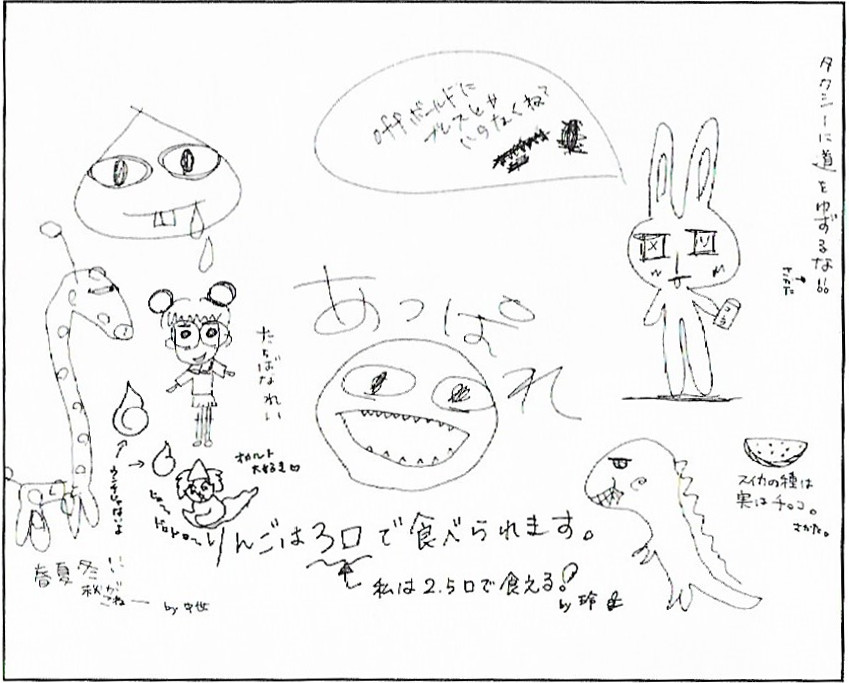 タクシーに道をゆずるな!!
さかた
offボールに
プレスとか
いらなくね?
あっぱれ
たちばなれい
オカルト
大好き♡
ウンチじゃないよ
ヒュ〜
ドロドロ〜
りんごは3口で食べられます。
私は2.5口で食える!
by 玲
スイカの種は
実はチョコ。
さかた。
春夏冬
秋がねー
by 中世